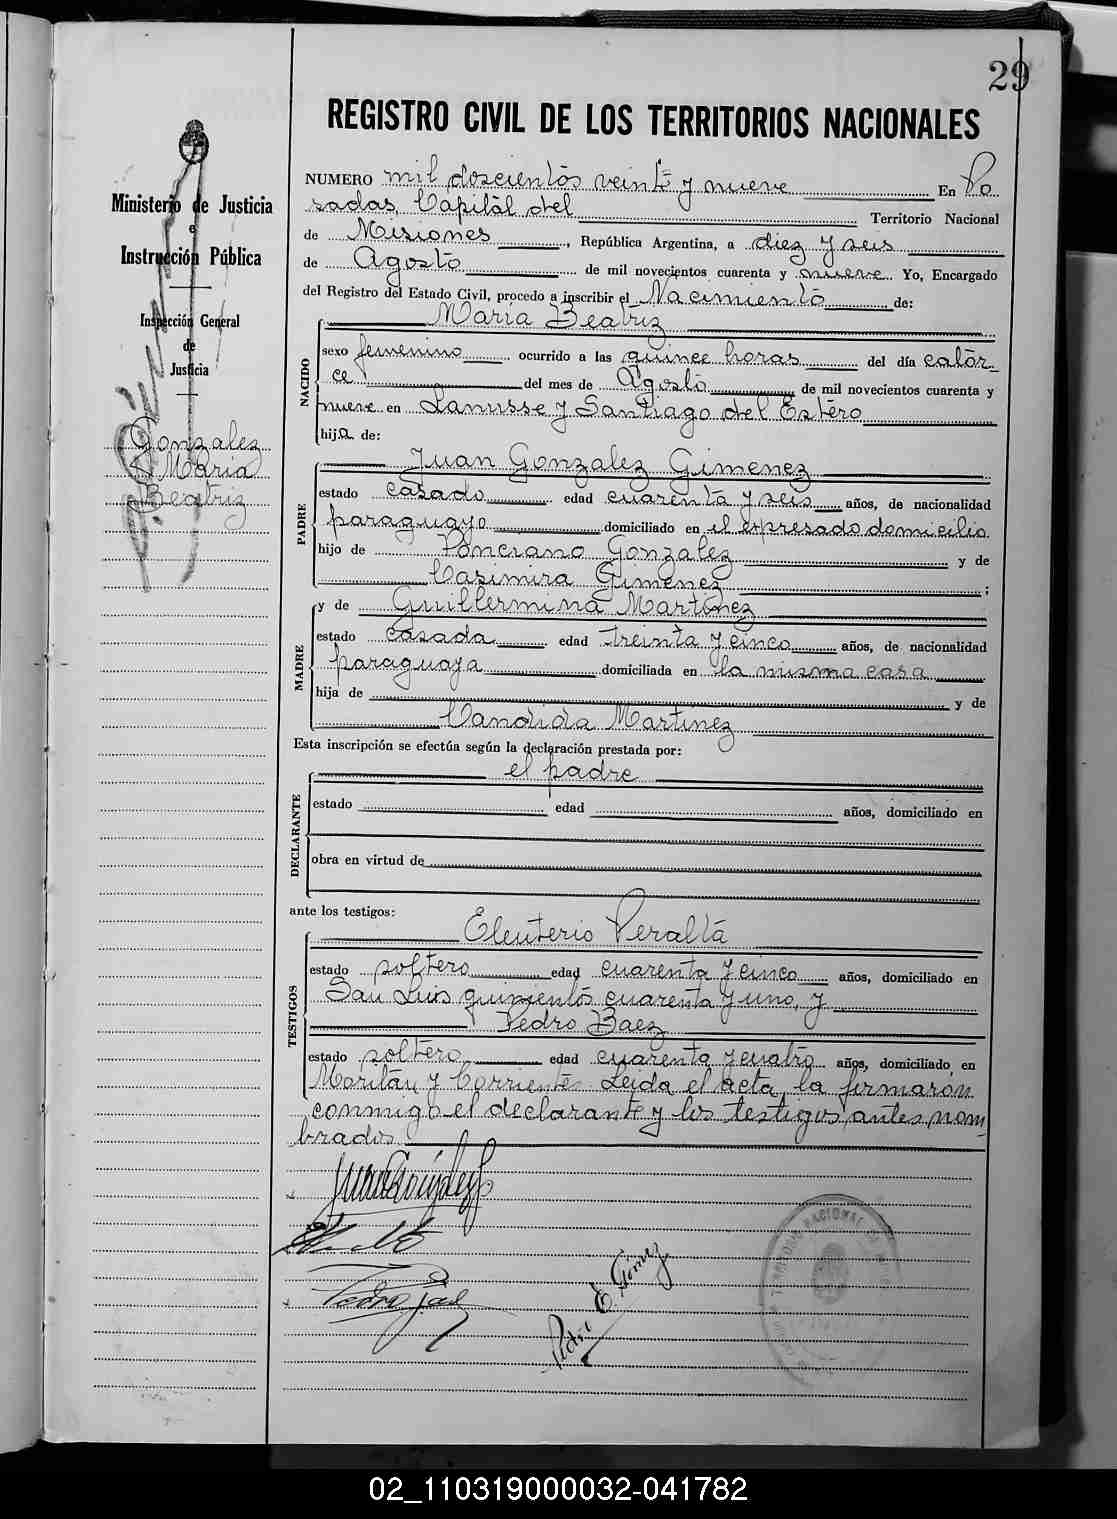 29
REGISTRO CIVIL DE LOS TERRITORIOS NACIONALES
Ministerio de Justicia
e
Instrucción Pública
Inspección General
de
Justicia
Gonzalez
Maria
Beatriz
NUMERO mil doscientos veinte y nueve En Po
sadas, Capital del Territorio Nacional
de Misiones, República Argentina, a diez y seis
de Agosto de mil novecientos cuarenta y nueve Yo, Encargado
del Registro del Estado Civil, procedo a inscribir el Nacimiento de:
Maria Beatriz
NACIDO
sexo femenino ocurrido a las quince horas del día cator
ce del mes de Agosto de mil novecientos cuarenta y
nueve en Lanusse y Santiago del Estero
hija de:
Juan Gonzalez Gimenez
PADRE
estado casado edad cuarenta y seis años, de nacionalidad
paraguayo domiciliado en el expresado domicilio
hijo de Ponciano Gonzalez y de
Casimira Gimenez ;
y de Guillermina Martinez
MADRE
estado casada edad treinta y cinco años, de nacionalidad
paraguaya domiciliada en la misma casa
hija de y de
Candida Martinez
Esta inscripción se efectúa según la declaración prestada por:
el padre
DECLARANTE
estado edad años, domiciliado en
obra en virtud de
ante los testigos:
Eleuterio Peralta
TESTIGOS
estado soltero edad cuarenta y cinco años, domiciliado en
San Luis quinientos cuarenta y uno, y
Pedro Baez
estado soltero edad cuarenta y cuatro años, domiciliado en
Moritán y Corrientes Leida el acta, la firmaron
conmigo el declarante y los testigos antes nom
brados.
Pedro E. Gómez
TERRITORIO NACIONAL DE
02_110319000032-041782